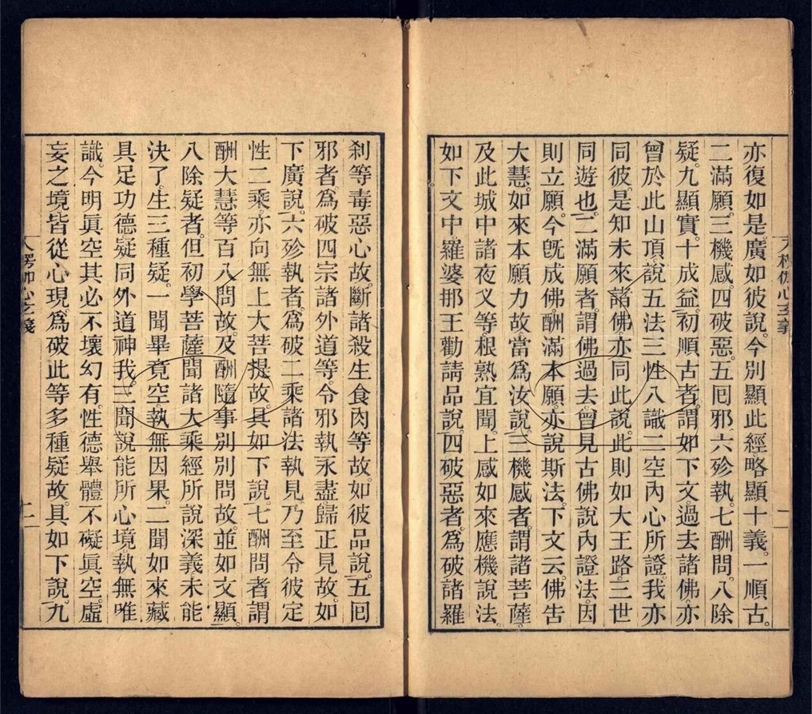 亦復如是廣如彼說。今別顯此經略顯十義。一順古。
二滿願。三機感。四破惡。五囘邪。六殄執。七酬問。八除
疑。九顯實。十成益。初順古者。謂如下文過去諸佛亦
曾於此山頂說五法三性八識二空內心所證。我亦
同彼。是知未來諸佛亦同此說。此則如大王路。三世
同遊也。二滿願者。謂佛過去曾見古佛說內證法。因
則立願。今旣成佛。酬滿本願。亦說斯法。下文云。佛告
大慧。如來本願力故當爲汝說。三機感者。謂諸菩薩
及此城中諸夜叉等根熟宜聞。上感如來應機說法。
如下文中羅婆那王勸請品說。四破惡者。爲破諸羅
刹等毒惡心故。斷諸殺生食肉等故。如彼品說。五囘
邪者。爲破四宗諸外道等。令邪執永盡歸正見故。如
下廣說。六殄執者。爲破二乘諸法執見。乃至令彼定
性二乘。亦向無上大菩提故。具如下說。七酬問者。謂
酬大慧等百八問故。及酬隨事別別問故。並如文顯。
八除疑者。但初學菩薩聞諸大乘經所說深義未能
決了。生三種疑。一聞畢竟空執無因果。二聞如來藏
具足功德疑同外道神我。三聞說能所心境執無唯
識。今明眞空其必不壞幻有。性德舉體不礙眞空。虛
妄之境皆從心現。爲破此等多種疑故。具如下說。九
入楞伽心玄義
一
入楞伽心玄義
二